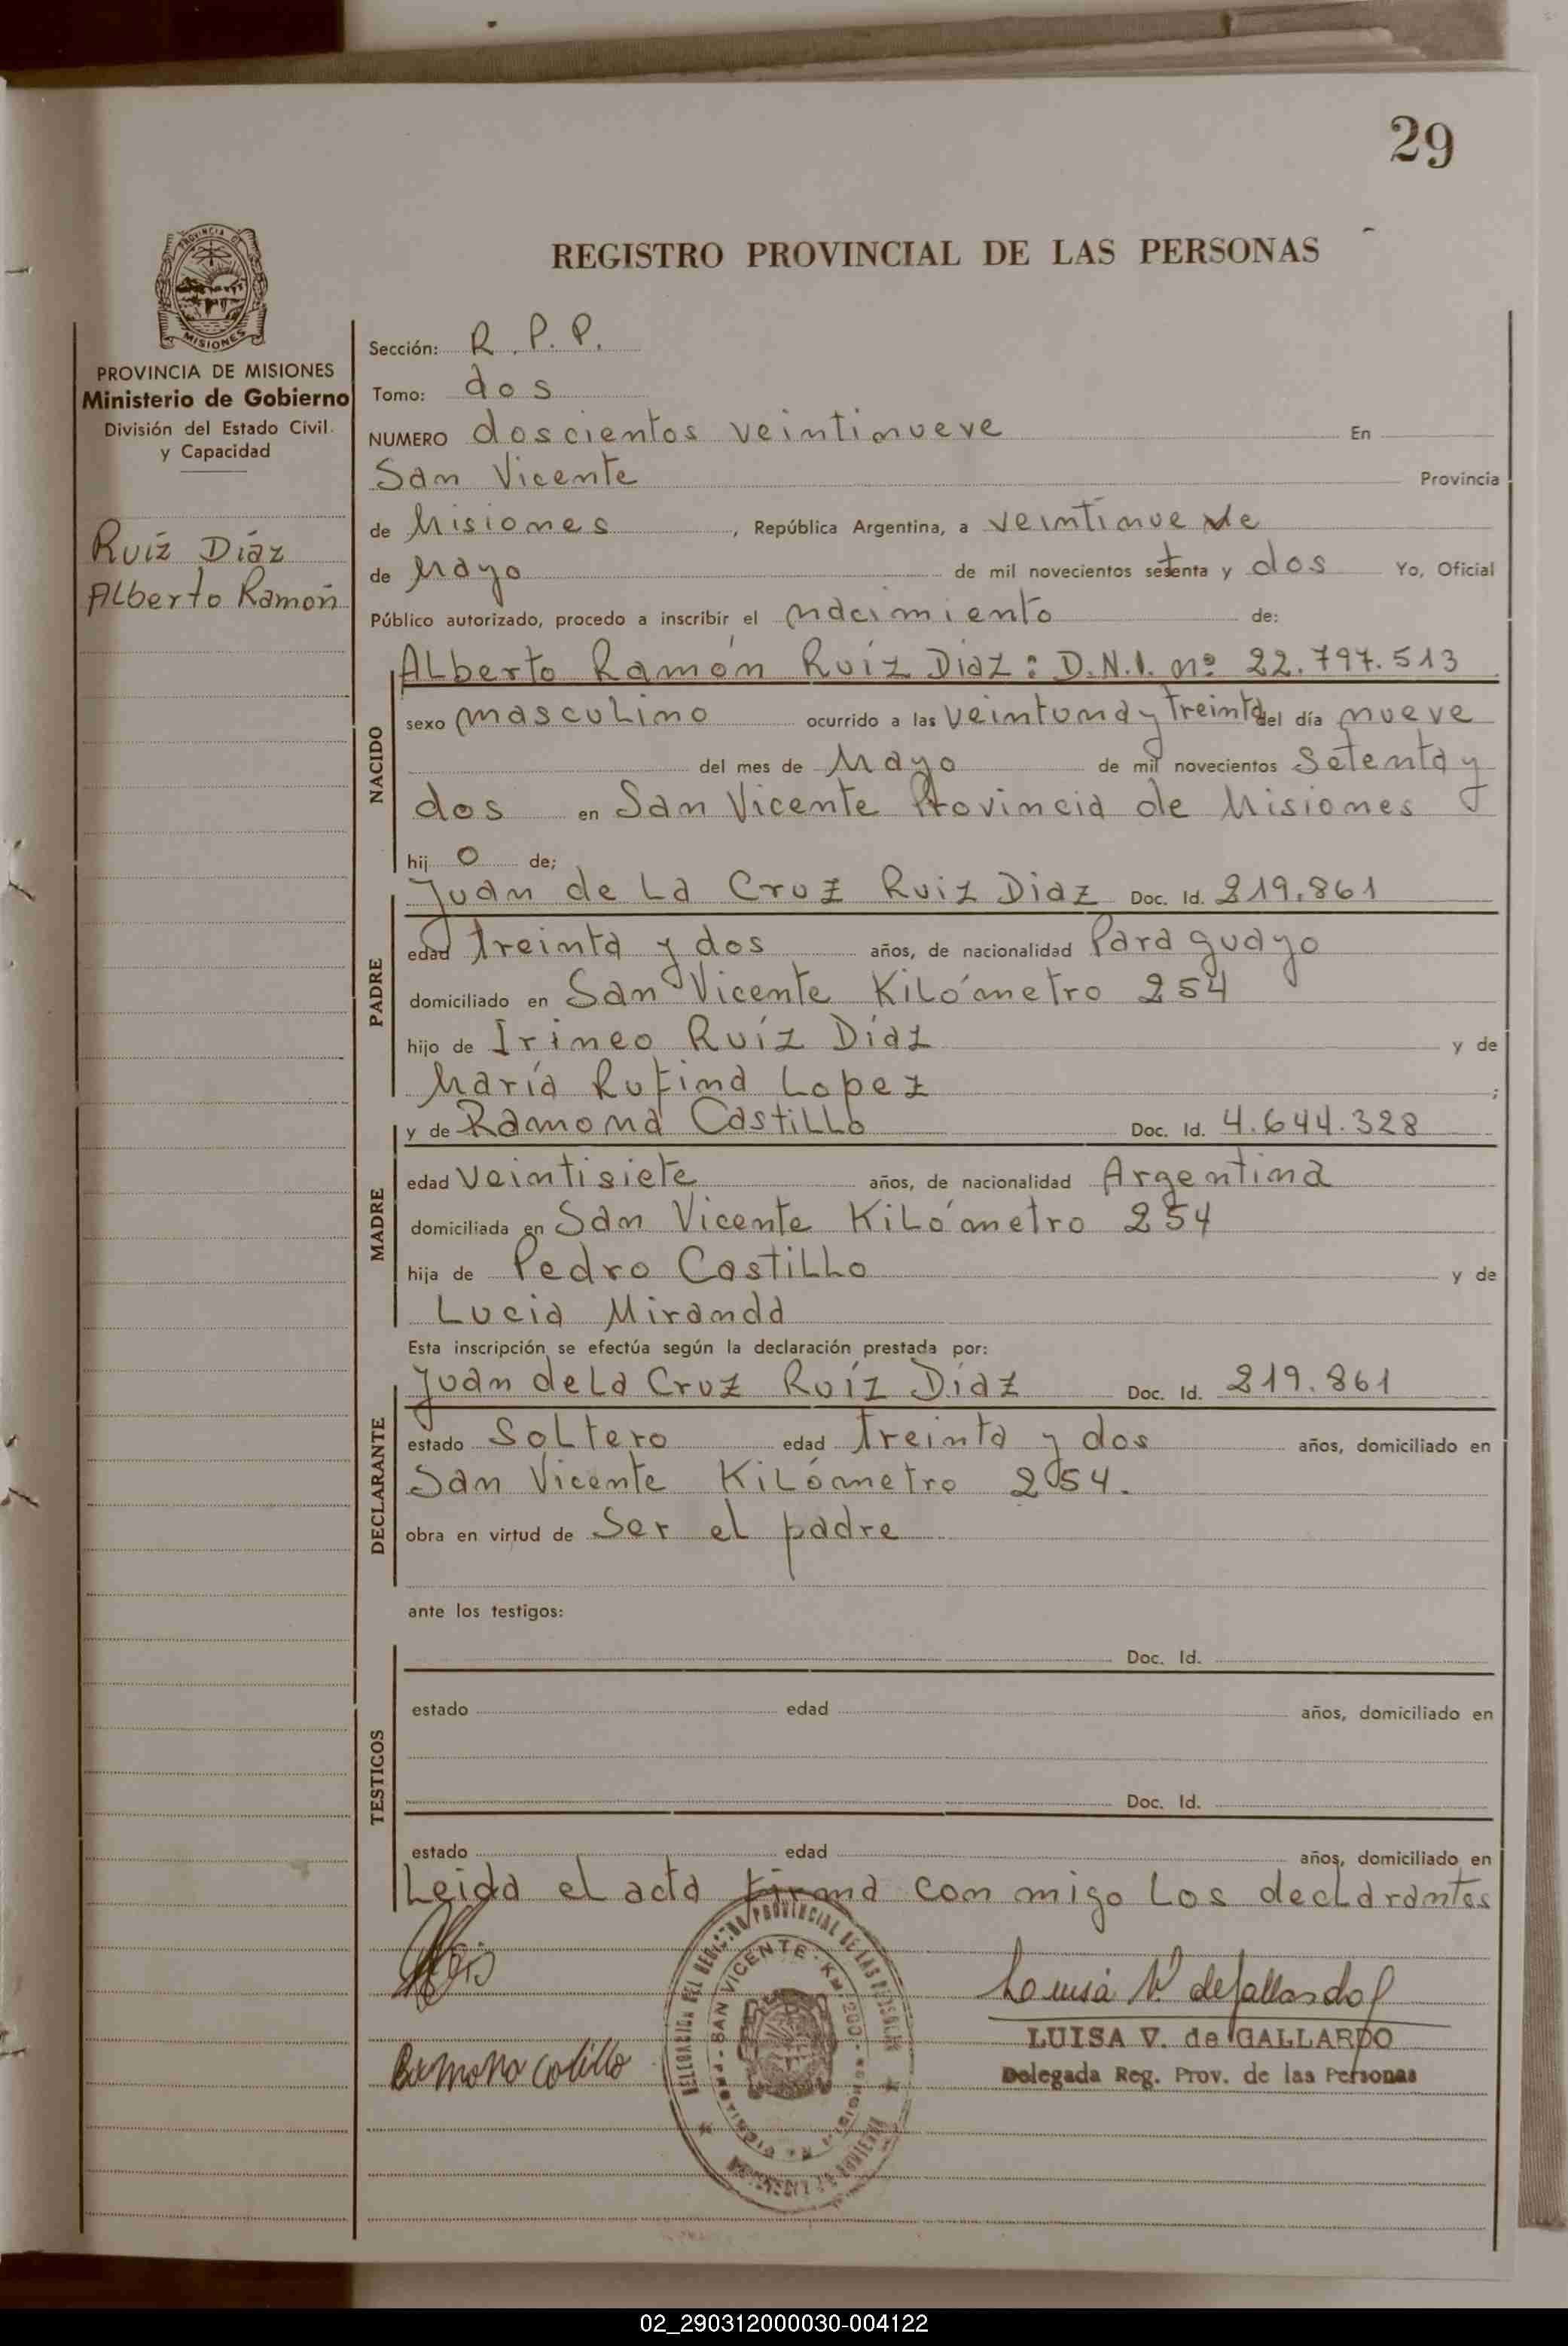 29
REGISTRO PROVINCIAL DE LAS PERSONAS
PROVINCIA DE MISIONES
Ministerio de Gobierno
División del Estado Civil
y Capacidad
Ruíz Díaz
Alberto Ramón
Sección: R. P. P.
Tomo: dos
NUMERO doscientos veintinueve En
San Vicente Provincia
de Misiones, República Argentina, a veintinueve
de Mayo de mil novecientos setenta y dos Yo, Oficial
Público autorizado, procedo a inscribir el nacimiento de:
NACIDO
Alberto Ramón Ruíz Díaz: D.N.I. nº 22.797.513
sexo masculino ocurrido a las veintuna y treinta del día nueve
del mes de Mayo de mil novecientos setenta y
dos en San Vicente Provincia de Misiones
hij o de;
PADRE
Juan de La Cruz Ruiz Diaz Doc. Id. 219.861
edad treinta y dos años, de nacionalidad Paraguayo
domiciliado en San Vicente Kilómetro 254
hijo de Irineo Ruíz Díaz y de
María Rufina Lopez ;
MADRE
y de Ramona Castillo Doc. Id. 4.644.328
edad veintisiete años, de nacionalidad Argentina
domiciliada en San Vicente Kilómetro 254
hija de Pedro Castillo y de
Lucia Miranda
Esta inscripción se efectúa según la declaración prestada por:
DECLARANTE
Juan de La Cruz Ruíz Díaz Doc. Id. 219.861
estado Soltero edad treinta y dos años, domiciliado en
San Vicente Kilómetro 254.
obra en virtud de Ser el padre
ante los testigos:
TESTIGOS
Doc. Id.
estado edad años, domiciliado en
Doc. Id.
estado edad años, domiciliado en
Leida el acta firma con migo Los declarantes
Luisa V. de Gallardo
LUISA V. de GALLARDO
Delegada Reg. Prov. de las Personas
DELEGACION DEL REGISTRO PROVINCIAL DE LAS PERSONAS
SAN VICENTE - KM.
02_290312000030-004122